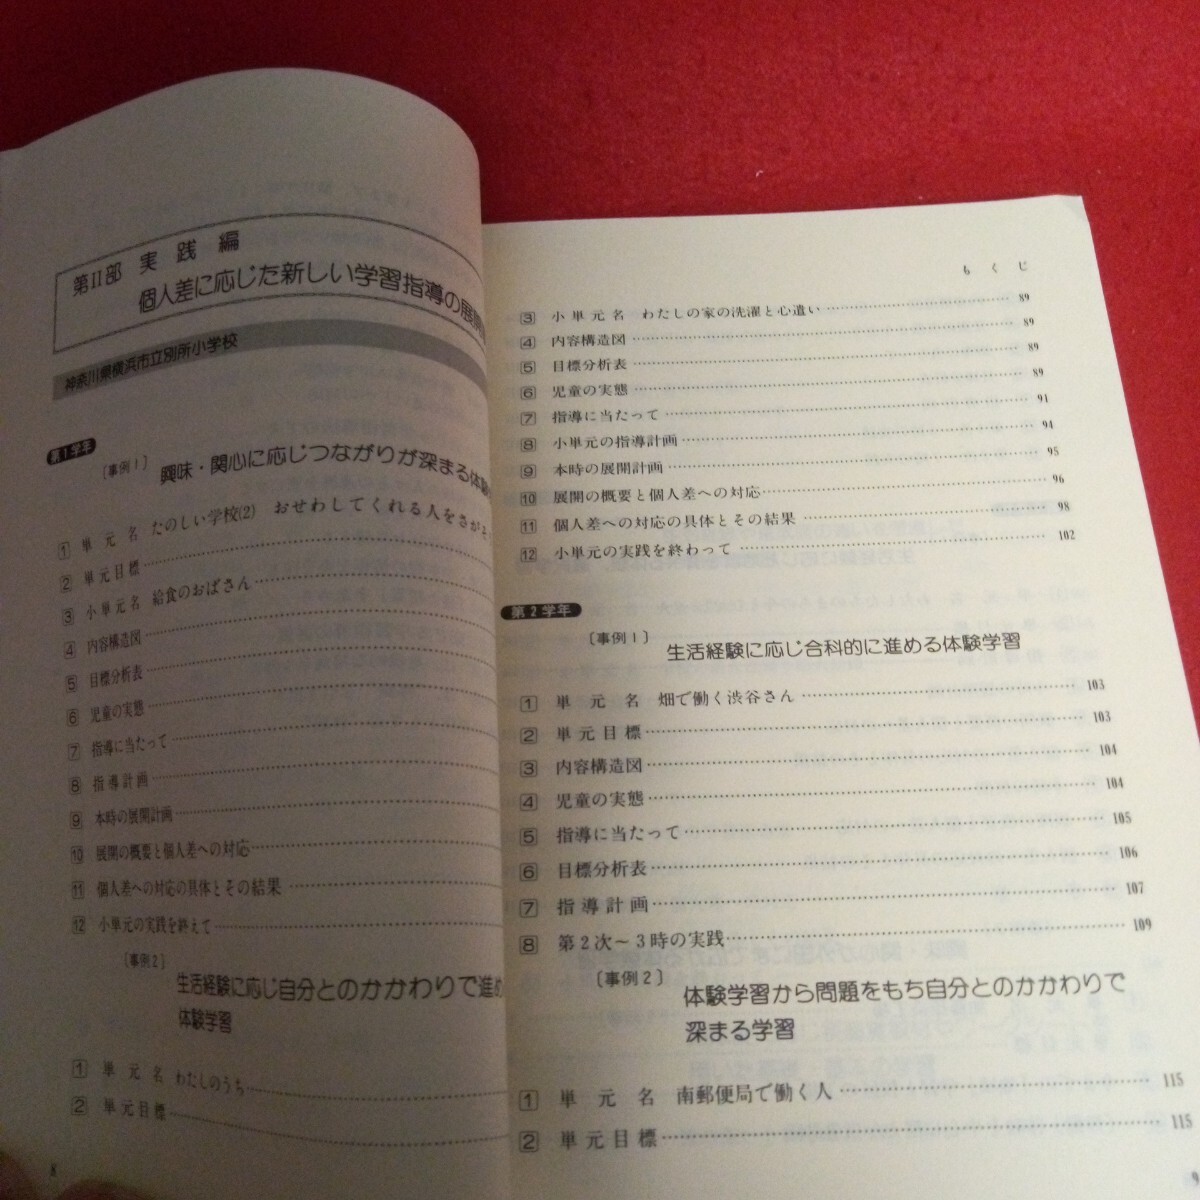 第II部 実践編
個人差に応じた新しい学習指導の展開
神奈川県横浜市立別所小学校
第1学年
〔事例1〕
興味・関心に応じつながりが深まる体験
1 単元名 たのしい学校(2) おせわしてくれる人をさがそ
2 単元目標
3 小単元名 給食のおばさん
4 内容構造図
5 目標分析表
6 児童の実態
7 指導に当たって
8 指導計画
9 本時の展開計画
10 展開の概要と個人差への対応
11 個人差への対応の具体とその結果
12 小単元の実践を終えて
〔事例2〕
生活経験に応じ自分とのかかわりで進め
体験学習
1 単元名 わたしのうち
2 単元目標
8
もくじ
3 小単元名 わたしの家の洗濯と心遣い 89
4 内容構造図 89
5 目標分析表 89
6 児童の実態 89
7 指導に当たって 91
8 小単元の指導計画 94
9 本時の展開計画 95
10 展開の概要と個人差への対応 96
11 個人差への対応の具体とその結果 98
12 小単元の実践を終わって 102
第2学年
〔事例1〕
生活経験に応じ合科的に進める体験学習
1 単元名 畑で働く渋谷さん 103
2 単元目標 103
3 内容構造図 104
4 児童の実態 104
5 指導に当たって 105
6 目標分析表 106
7 指導計画 107
8 第2次〜3時の実践 109
〔事例2〕
体験学習から問題をもち自分とのかかわりで
深まる学習
1 単元名 南郵便局で働く人 115
2 単元目標 115
9